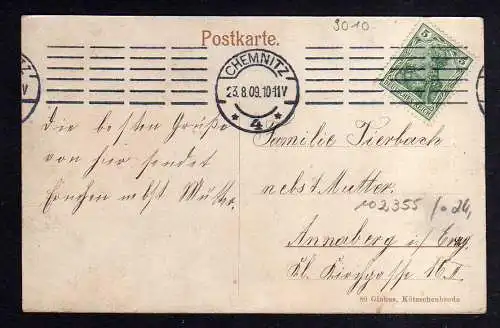 3010
Postkarte.
CHEMNITZ
23.8.09.10-11V
* 4 *
5 5
DEUTSCHES REICH
Die besten Grüße
von hier sendet
nebst Mutter.
Familie Fierbach
nebst Mutter.
102355
Annaberg i/ Erzg.
Kl. Kirchgasse
80 Globus, Kötzschenbroda